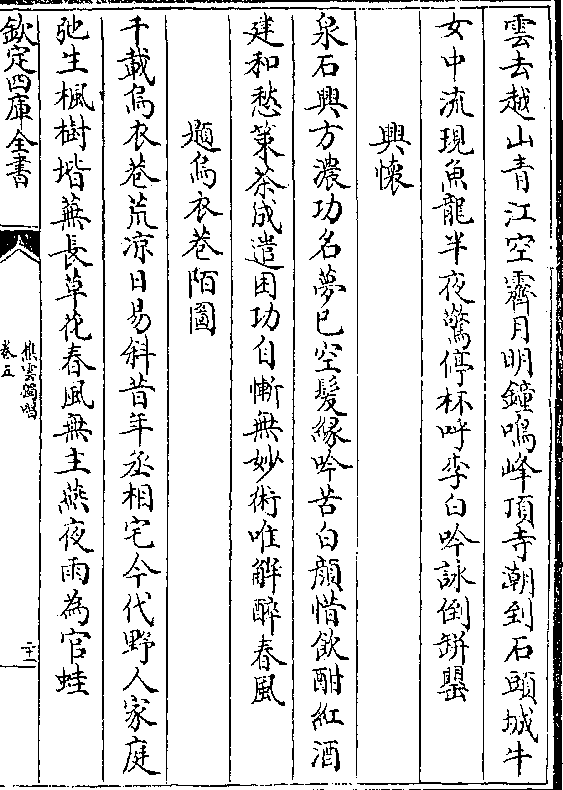 雲去越山青江空霽月明鐘鳴峰頂寺潮到石頭城牛
女中流現魚龍半夜驚停杯呼李白吟詠倒缾罌
興懷
泉石興方濃功名夢已空髪緣吟苦白顔惜飲酣紅酒
建和愁策茶成遣困功自慚無妙術唯解醉春風
題烏衣巷陌圖
千載烏衣巷荒凉日易斜昔年丞相宅今代野人家庭
弛生楓樹堦蕪長草花春風無主燕夜雨為官蛙
欽定四庫全書
樵雲獨唱
卷五
二十二